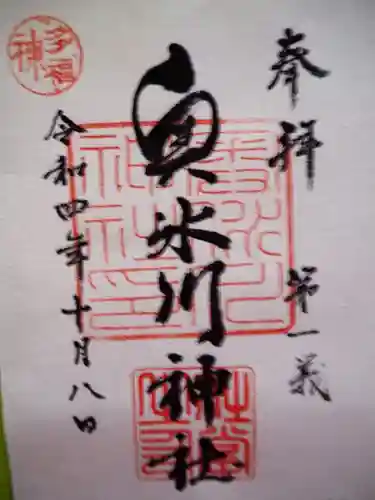 奉拝
第一義
奥氷川神社
令和四年十月八日
多福神